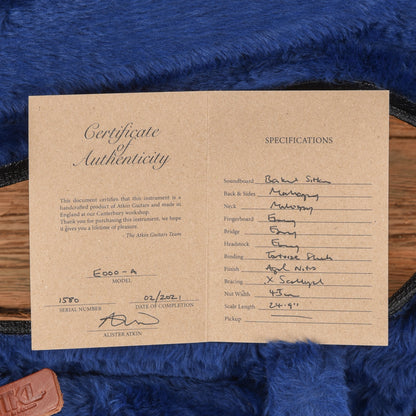 Certificate
of
Authenticity
This document certifies that this instrument is a
handcrafted product of Atkin Guitars and made in
England at our Canterbury workshop.
Thank you for purchasing this instrument, we hope
it gives you a lifetime of pleasure.
The Atkin Guitars Team
E000-A
MODEL
1580 02/2021
SERIAL NUMBER DATE OF COMPLETION
ALISTER ATKIN
SPECIFICATIONS
Soundboard Baked Sitka
Back & Sides Mahogany
Neck Mahogany
Fingerboard Ebony
Bridge Ebony
Headstock Ebony
Binding Tortoise
Finish Aged Nitro
Bracing X Scalloped
Nut Width
Scale Length 24.9"
Pickup